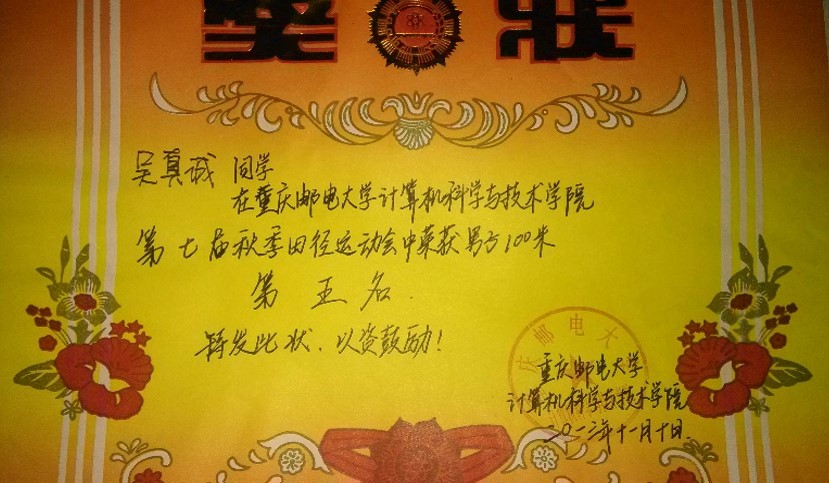 奖 状
吴真诚 同学
在重庆邮电大学计算机科学与技术学院
第七届秋季田径运动会中荣获男子100米
第五名.
特发此状、以资鼓励!
庆邮电大
重庆邮电大学
计算机科学与技术学院
二〇一三年十一月十日.